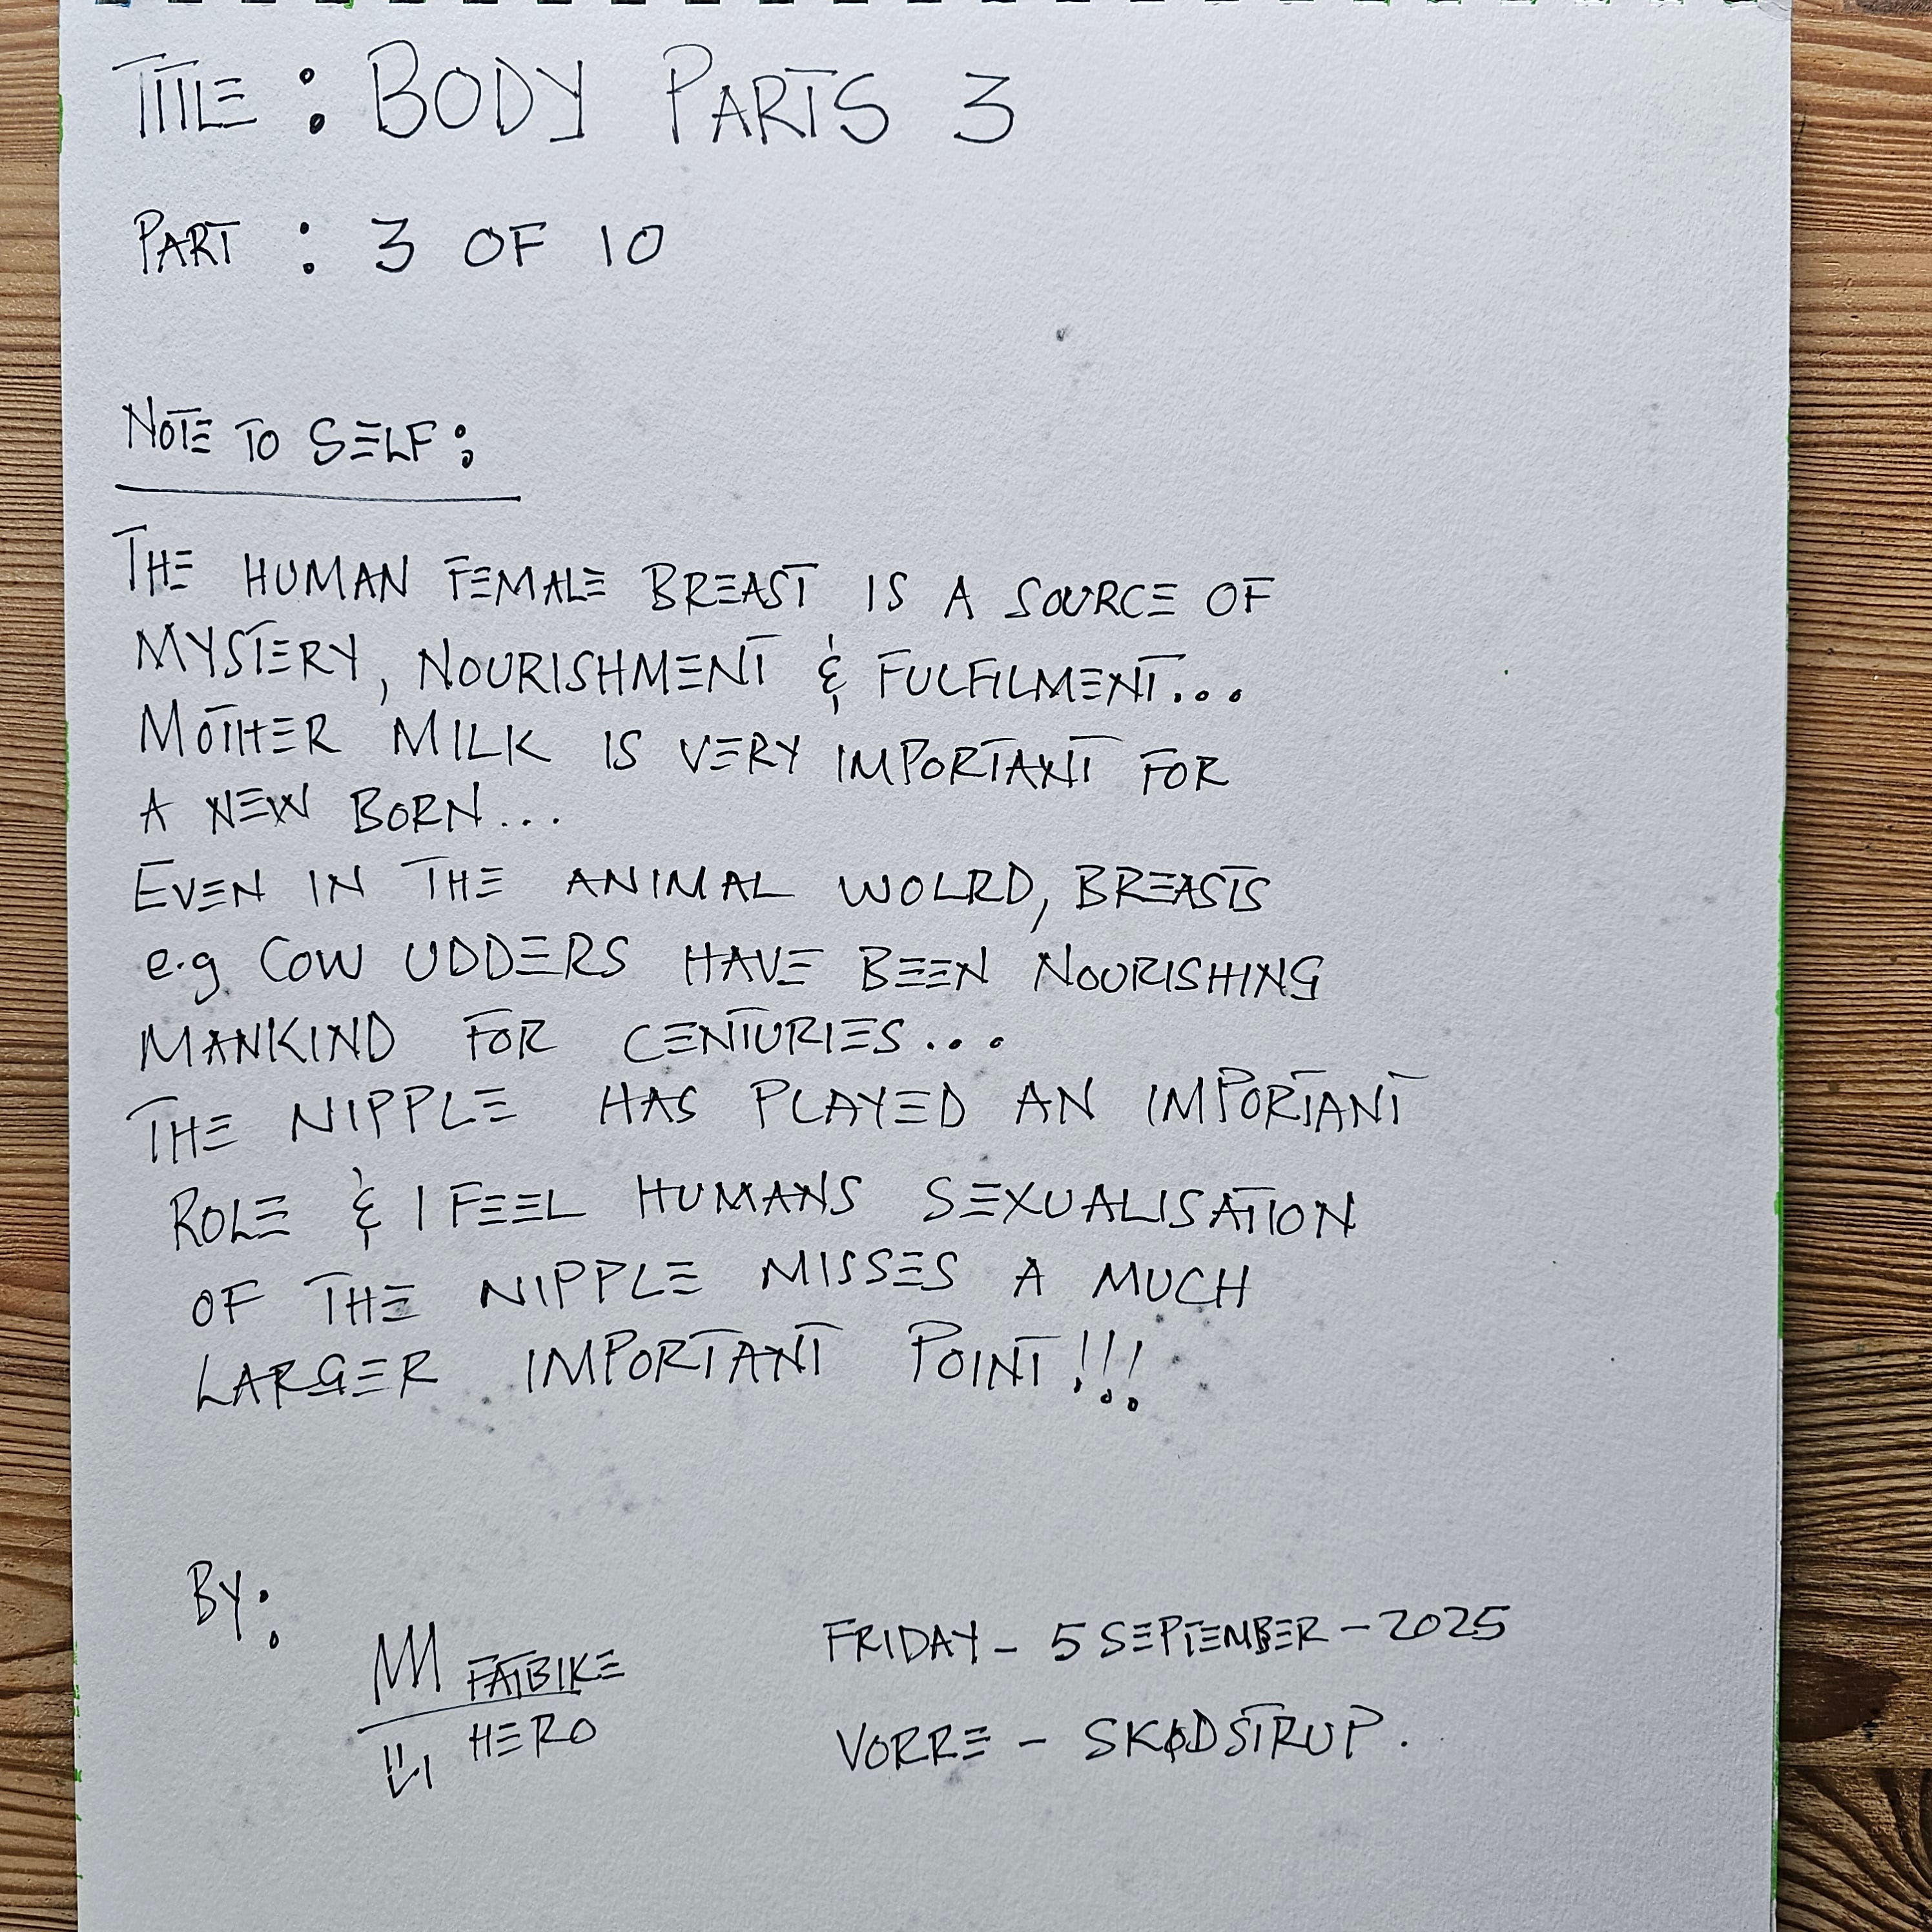 TITLE : BODY PARTS 3
PART : 3 OF 10
NOTE TO SELF :
THE HUMAN FEMALE BREAST IS A SOURCE OF
MYSTERY, NOURISHMENT & FULFILMENT...
MOTHER MILK IS VERY IMPORTANT FOR
A NEW BORN...
EVEN IN THE ANIMAL WOLRD, BREASTS
e.g COW UDDERS HAVE BEEN NOURISHING
MANKIND FOR CENTURIES...
THE NIPPLE HAS PLAYED AN IMPORTANT
ROLE & I FEEL HUMANS SEXUALISATION
OF THE NIPPLE MISSES A MUCH
LARGER IMPORTANT POINT!!!
BY:
FATBIKE
HERO
FRIDAY - 5 SEPTEMBER - 2025
VORRE - SKØDSTRUP.